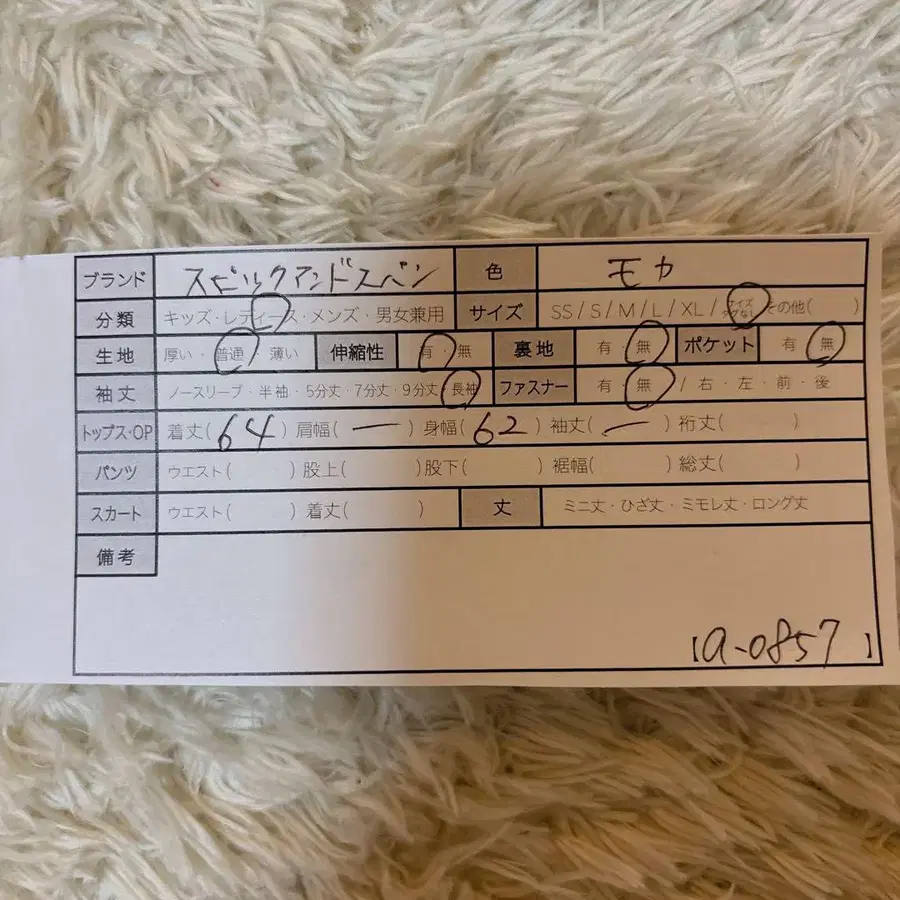 ブランド スピックアンドスパン 色 モカ
分類 キッズ・レディース・メンズ・男女兼用 サイズ SS/S/M/L/XL/サイズタグなし その他( )
生地 厚い・普通・薄い 伸縮性 有・無 裏地 有・無 ポケット 有・無
袖丈 ノースリーブ・半袖・5分丈・7分丈・9分丈・長袖 ファスナー 有・無/右・左・前・後
トップス・OP 着丈(64)肩幅(ー)身幅(62)袖丈(ー)裄丈( )
パンツ ウエスト( )股上( )股下( )裾幅( )総丈( )
スカート ウエスト( )着丈( ) 丈 ミニ丈・ひざ丈・ミモレ丈・ロング丈
備考
【a-0857】